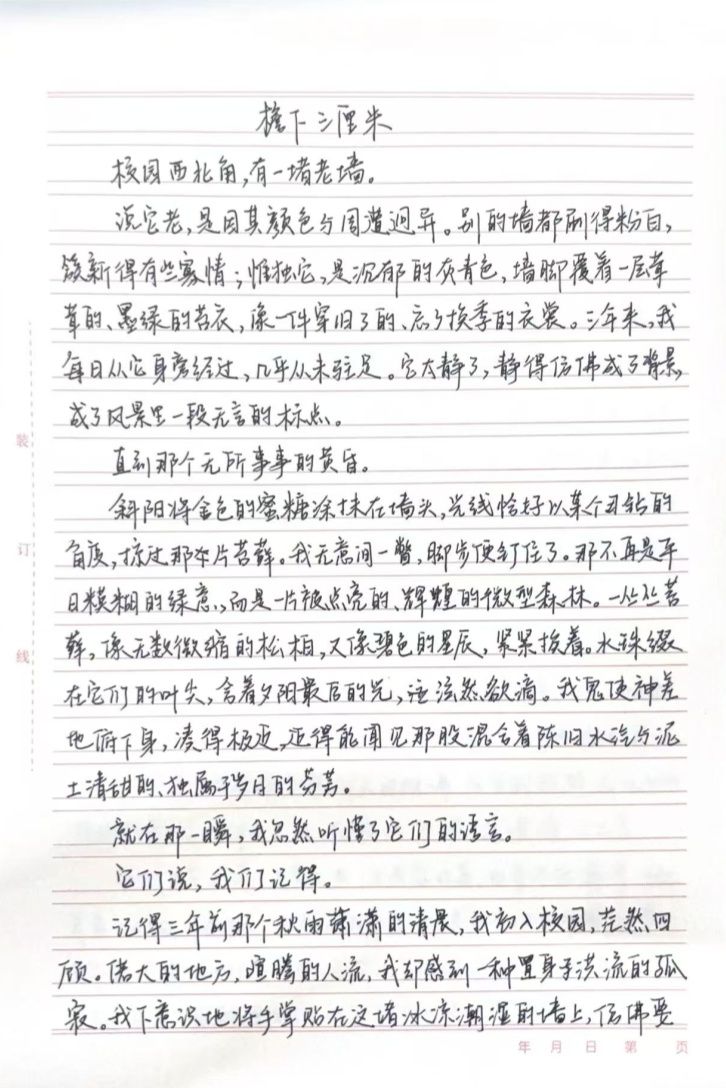 檐下三厘米
校园西北角,有一堵老墙。
说它老,是因其颜色与周遭迥异。别的墙都刷得粉白,
簇新得有些寡情;惟独它,是沉郁的灰青色,墙脚覆着一层茸
茸的、墨绿的苔衣,像一件穿旧了的、忘了换季的衣裳。三年来,我
每日从它身旁经过,几乎从未驻足。它太静了,静得仿佛成了背景,
成了风景里一段无言的标点。
直到那个无所事事的黄昏。
斜阳将金色的蜜糖涂抹在墙头,光线恰好以某个刁钻的
角度,掠过那片苔藓。我无意间一瞥,脚步便钉住了。那不再是平
日模糊的绿意,而是一片被点亮的、辉煌的微型森林。一丛丛苔
藓,像无数微缩的松柏,又像碧色的星辰,紧紧挨着。水珠缀
在它们的叶尖,含着夕阳最后的光,泫然欲滴。我鬼使神差
地俯下身,凑得极近,近得能闻见那股混合着陈旧水汽与泥
土清甜的、独属于岁月的芬芳。
就在那一瞬,我忽然听懂了它们的语言。
它们说,我们记得。
记得三年前那个秋雨潇潇的清晨,我初入校园,茫然四
顾。偌大的地方,喧腾的人流,我却感到一种置身于洪流的孤
寂。我下意识地将手掌贴在这堵冰凉潮湿的墙上,仿佛要
装
订
线
年 月 日 第 页